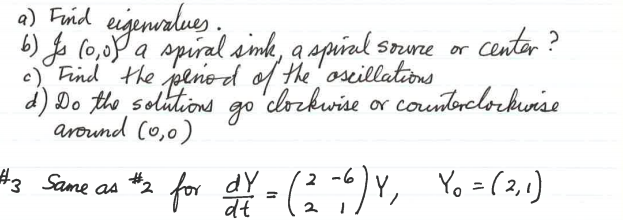 a) Find eigenvalues.
b) Is (0,0) a spiral sink, a spiral source or center?
c) Find the period of the oscillations
d) Do the solutions go clockwise or counterclockwise
around (0,0)
#3 Same as #2 for dY/dt = (2 -6; 2 1) Y, Y₀ = (2,1)